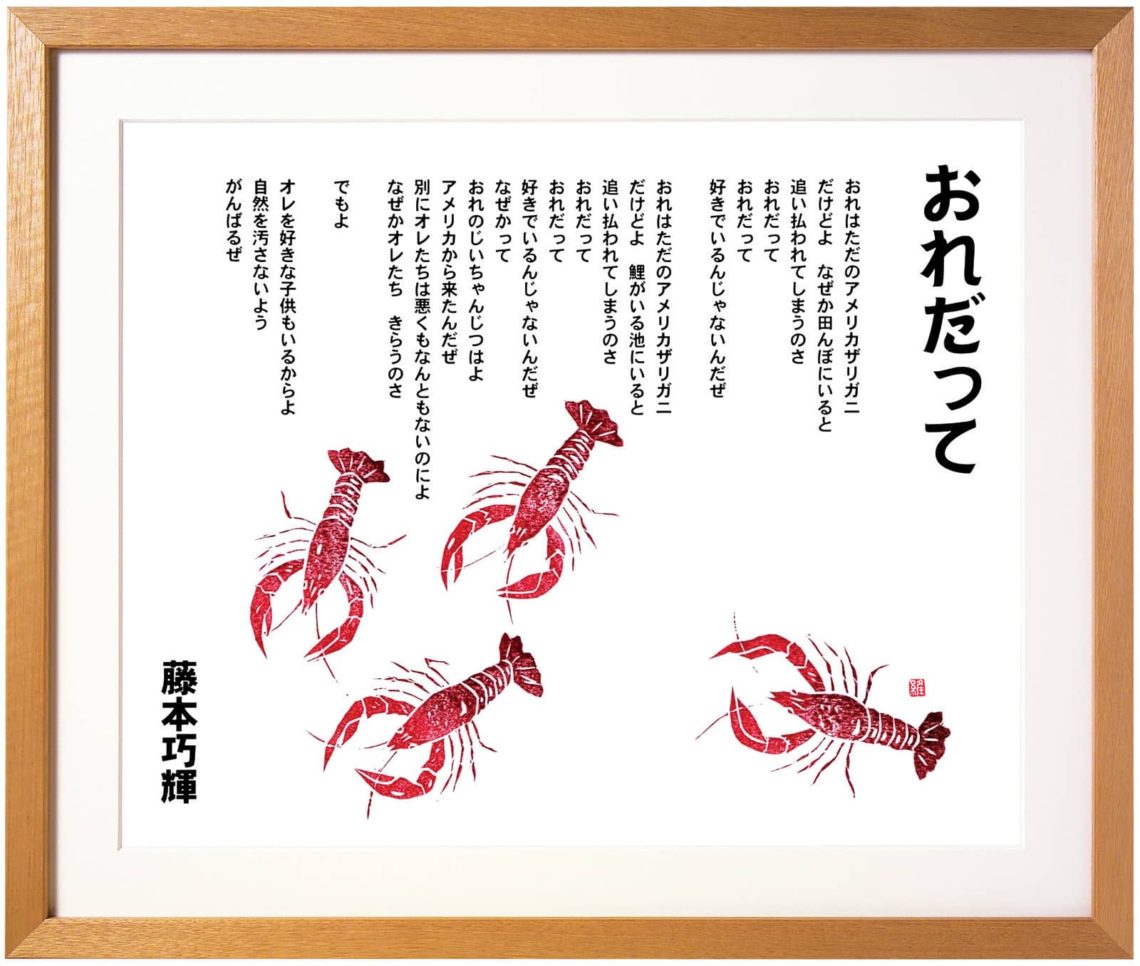 おれだって
おれはただのアメリカザリガニ
だけどよ　なぜか田んぼにいると
追い払われてしまうのさ
おれだって
おれだって
好きでいるんじゃないんだぜ
おれはただのアメリカザリガニ
だけどよ　鯉がいる池にいると
追い払われてしまうのさ
おれだって
おれだって
好きでいるんじゃないんだぜ
なぜかって
おれのじいちゃんじつはよ
アメリカから来たんだぜ
別にオレたちは悪くもなんともないのによ
なぜかオレたち　きらうのさ
でもよ
オレを好きな子供もいるからよ
自然を汚さないよう
がんばるぜ
藤本巧輝